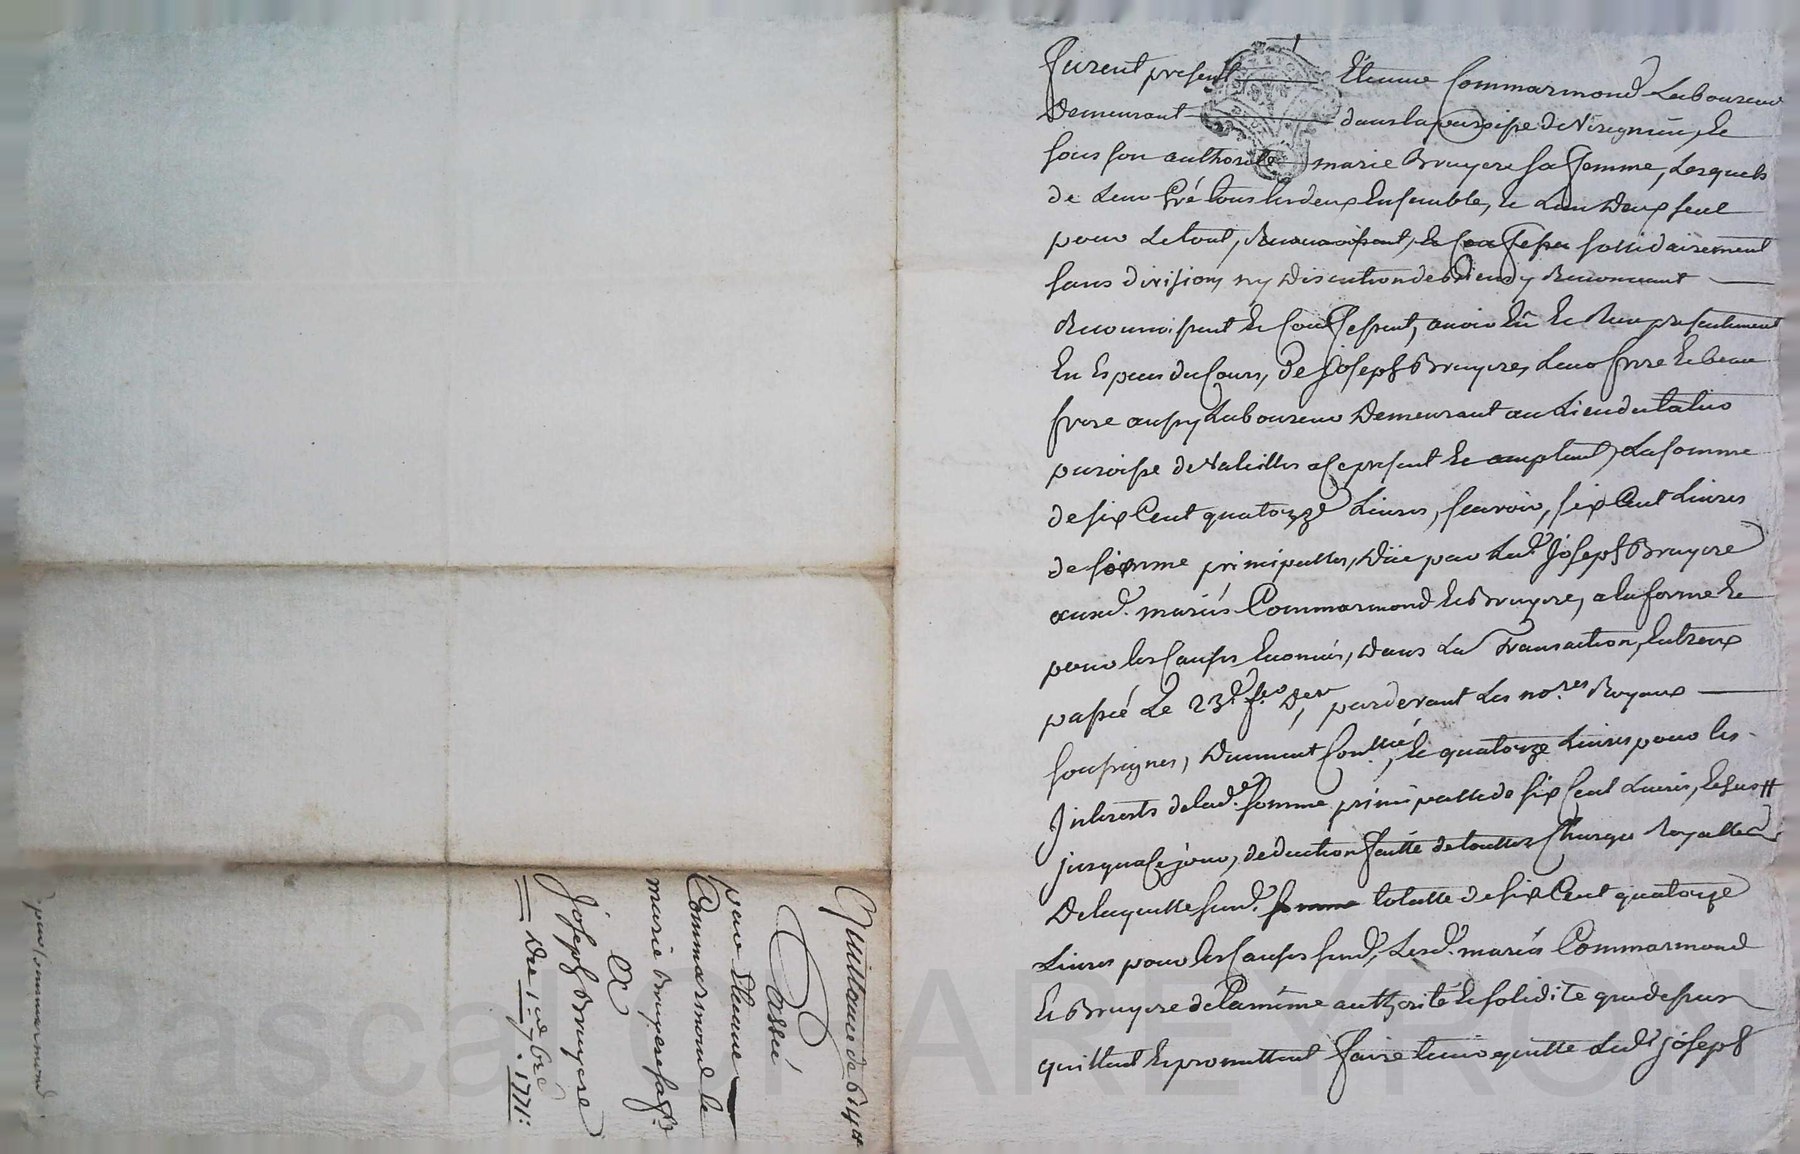 furent present Etienne Commarmond Laboureur
Demeurant dans la paroisse de Virignieu, Et
sous son authorité marie Bruyere sa femme, Lesquels
de Leur Gré tous les deux Ensemble, Et L'un D'eux seul
pour Le tout, sollidairement
sans division, ny Discution de Biens y Renonceant
Reconnoissent Et Confessent, avoir Eû Et Reçu presentement
En Especes du Cours, de Joseph Bruyere, Leur frere Et beau
frere aussy Laboureur Demeurant au Lieu du
paroisse de a Ce present Et acceptant, La somme
de six Cent quatorze Livres, scavoir, six Cent Livres
de somme principalle, Düe par Led.t Joseph Bruyere
ausd. mariés Commarmond Et Bruyere, a la forme Et
pour les Causes Enoncées, Dans La Transaction, Entreux
passé Le 23e D.er, pardevant Les no.res Royaux
soussignes, Duement Et quatorze Livres pour les
Interests de lad.e somme principalle de six Cent Livres,
jusqu'a Ce jour, deduction faitte de touttes Charges Royalles
De laquelle susd. somme totalle de six Cent quatorze
Livres pour les Causes susd. Lesd. mariés Commarmond
Et Bruyere de la même authorité Et solidité que dessus
quittent Et promettent faire tenir quitte Led.t Joseph
Quittance de 614 tt
Passée
par Etienne
Commarmond Et
marie Bruyere sa f.e
A
Joseph Bruyere
Du 1er 7bre 1771:
pour Commarmond
Pascal CHAREYRON